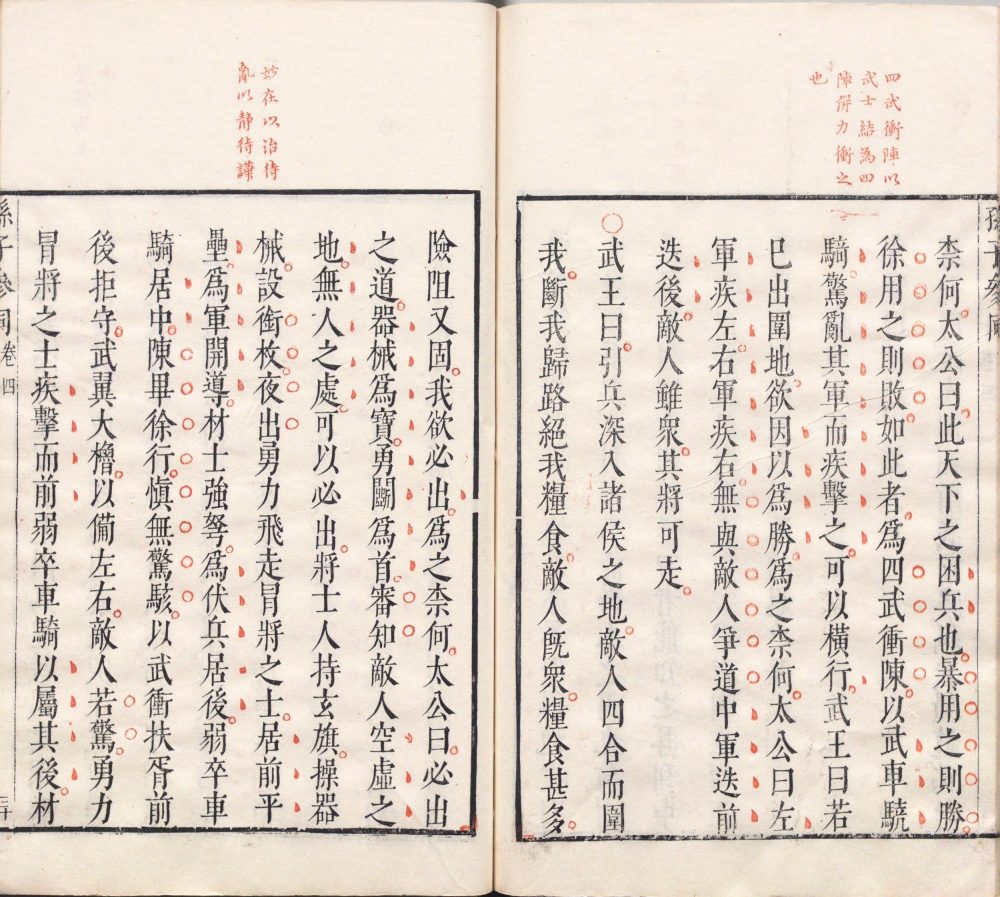 四武衝陣以
武士結為四
陣併力衝之
也
柰何太公曰此天下之困兵也暴用之則勝
徐用之則敗如此者爲四武衝陳以武車驍
騎驚亂其軍而疾擊之可以橫行武王曰若
已出圍地欲因以爲勝爲之柰何太公曰左
軍疾左右軍疾右無與敵人爭道中軍迭前
迭後敵人雖衆其將可走
武王曰引兵深入諸侯之地敵人四合而圍
我斷我歸路絕我糧食敵人旣衆糧食甚多
妙在以治待
亂以靜待譁
險阻又固我欲必出爲之柰何太公曰必出
之道器械爲寶勇鬭爲首審知敵人空虛之
地無人之處可以必出將士人持玄旗操器
械設銜枚夜出勇力飛走冒將之士居前平
壘爲軍開導材士強弩爲伏兵居後弱卒車
騎居中陳畢徐行慎無驚駭以武衝扶胥前
後拒守武翼大櫓以備左右敵人若驚勇力
冒將之士疾擊而前弱卒車騎以屬其後材
孫子參同 卷四